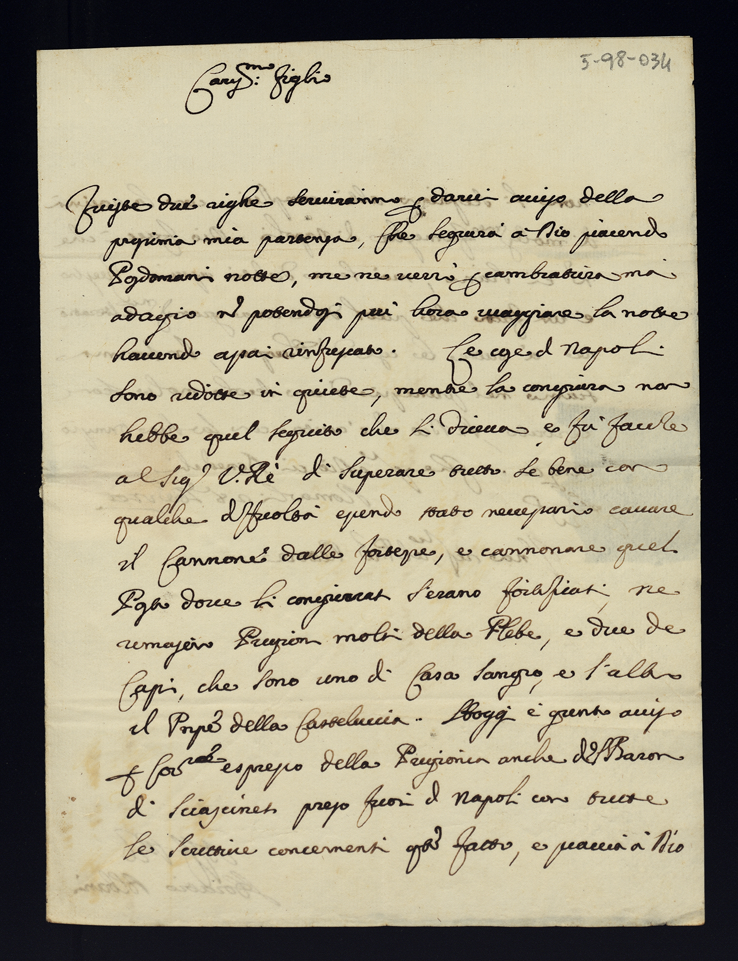 5-98-034
Caris.mo figlio
Queste due righe serviranno p darvi aviso della
prossima mia partenza, che seguirà à Dio piacendo
Posdomani notte, me ne verrò p cambiatura mà
adagio nō potendosi più hora viaggiare la notte
havendo assai rinfrescato. Le cose di Napoli
sono ridotte in quiete, mentre la congiura non
hebbe quel seguito che si diceva e fù facile
al Sig.r V. Rè di superare tutto se bene con
qualche difficoltà essendo stato necessario cavare
il Cannone dalle fortezze, e cannonare quel
Posto dove li congiurati s'erano fortificati, ne
rimasero Prigioni molti della Plebe, e due de
Capi, che sono uno di Casa Sangro, e l'altro
il Pnpe della Castelluccia. Hoggi è giunto aviso
p Cor.re espresso della Prigionia anche del Baron
di Sciascinet preso fuori di Napoli con tutte
le scritture concernenti qto fatto, e piaccia à Dio